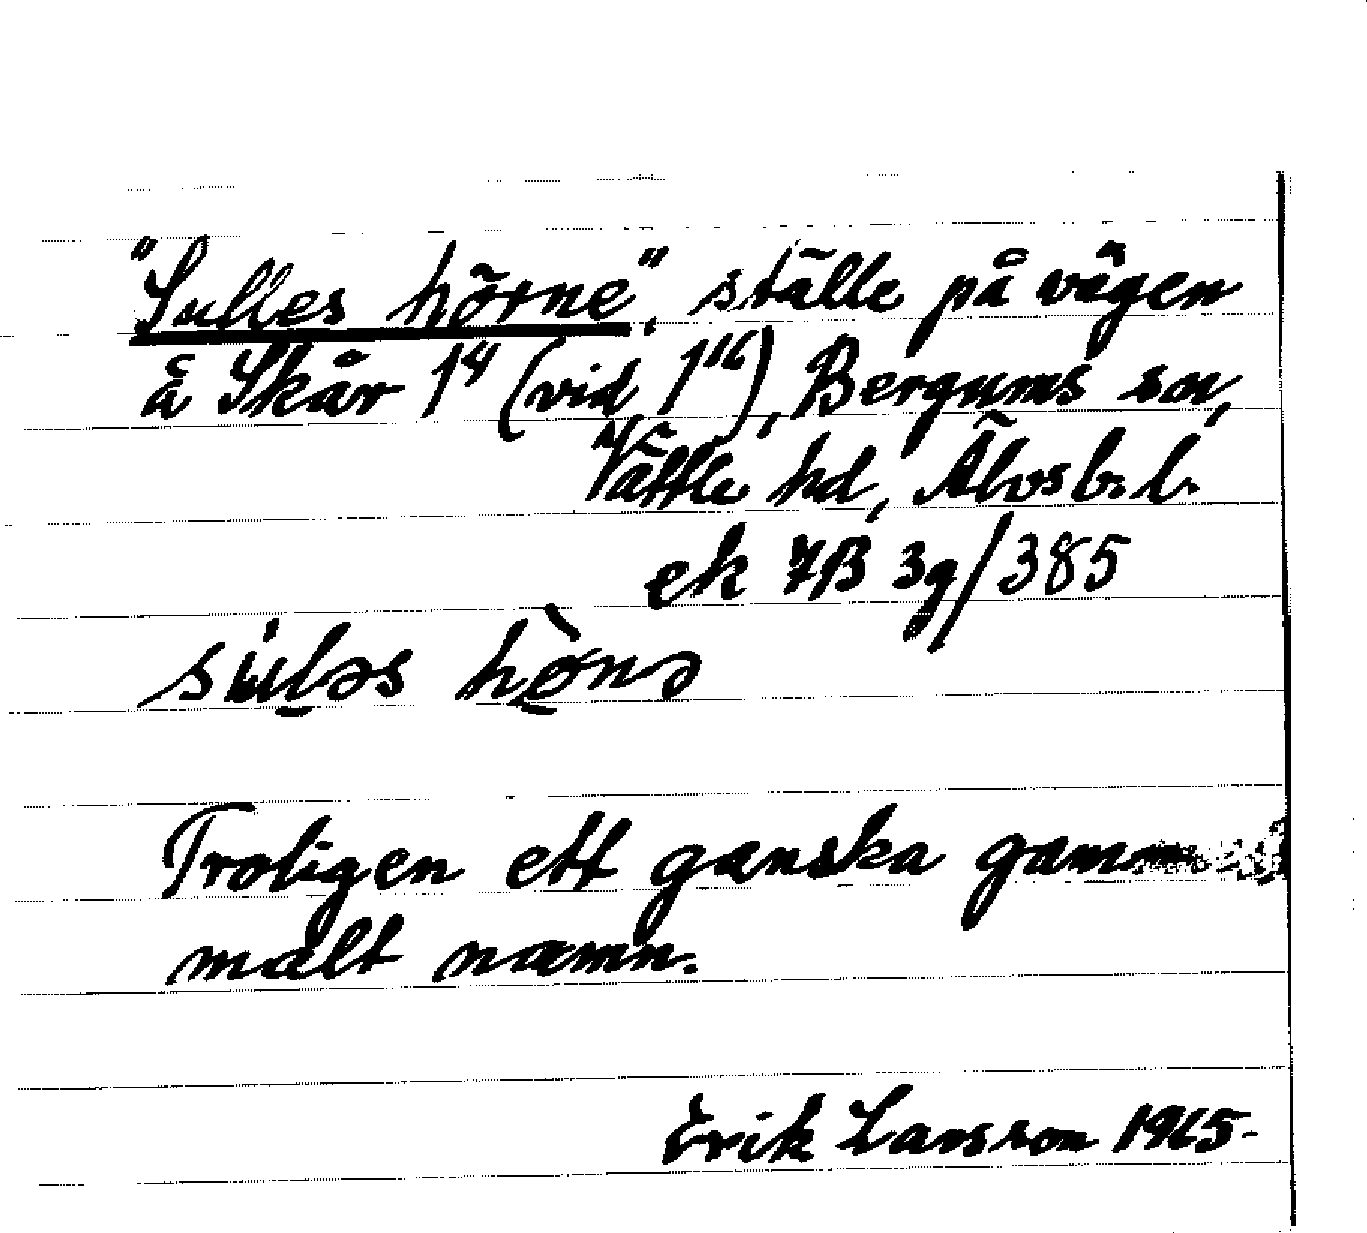 "Sulles hörne", ställe på vägen
å Skår 1⁴ (vid 1¹⁶), Bergums sn,
Vättle hd, Älvsb. l.
ek 7B 3g/385
sùləs hø̀nə
Troligen ett ganska gam
malt namn.
Erik Larsson 1965.